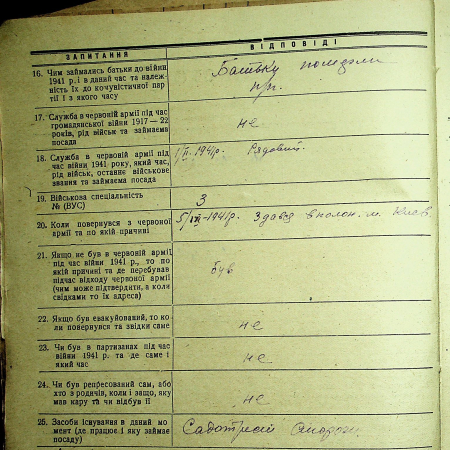 ЗАПИТАННЯ
ВІДПОВІДІ
16. Чим займались батьки до війни
1941 р. і в даний час та належ-
ність їх до комуністичної пар
тії і з якого часу
Батьки померли
п/п.
17. Служба в червоній армії під час
громадянської війни 1917—22
років, рід військ та займаєма
посада
не
18. Служба в червоній армії під
час війни 1941 року, який час,
рід військ, останнє військове
звання та займаєма посада
1941р. Рядовий.
19. Військова спеціальність
№ (ВУС)
3
20. Коли повернувся з червоної
армії та по якій причині
5/ІХ-1941р. Здавсь в полон. м. Київ.
21. Якщо не був в червоній армії
під час війни 1941 р., то по
якій причині та де перебував
підчас відходу червоної армії
(чим може підтвердити, в коли
свідками то їх адреса)
був
22. Якщо був евакуйований, то ко
ли повернувся та звідки саме
не
23. Чи був в партизанах під час
війни 1941 р. та де саме і
який час
не
24. Чи був репресований сам, або
хто з родичів, коли і защо, яку
мав кару та чи відбув її
не
25. Засоби існування в даний мо
мент (де працює і яку займає
посаду)